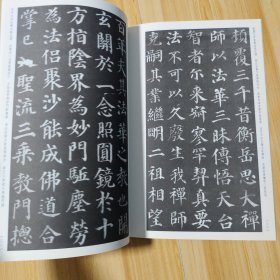 頓覆三千昔衡岳思大禪
師以法華三昧傳悟天台
智者尔來寂寥罕契真要
法不可以久廢生我禪師
克嗣其業継明二祖相望
百年夫其法華之教也開
玄關於一念照圓鏡於十
方指陰界為妙門駈塵勞
為法侶聚沙能成佛道合
掌已入聖流三乘教門揔